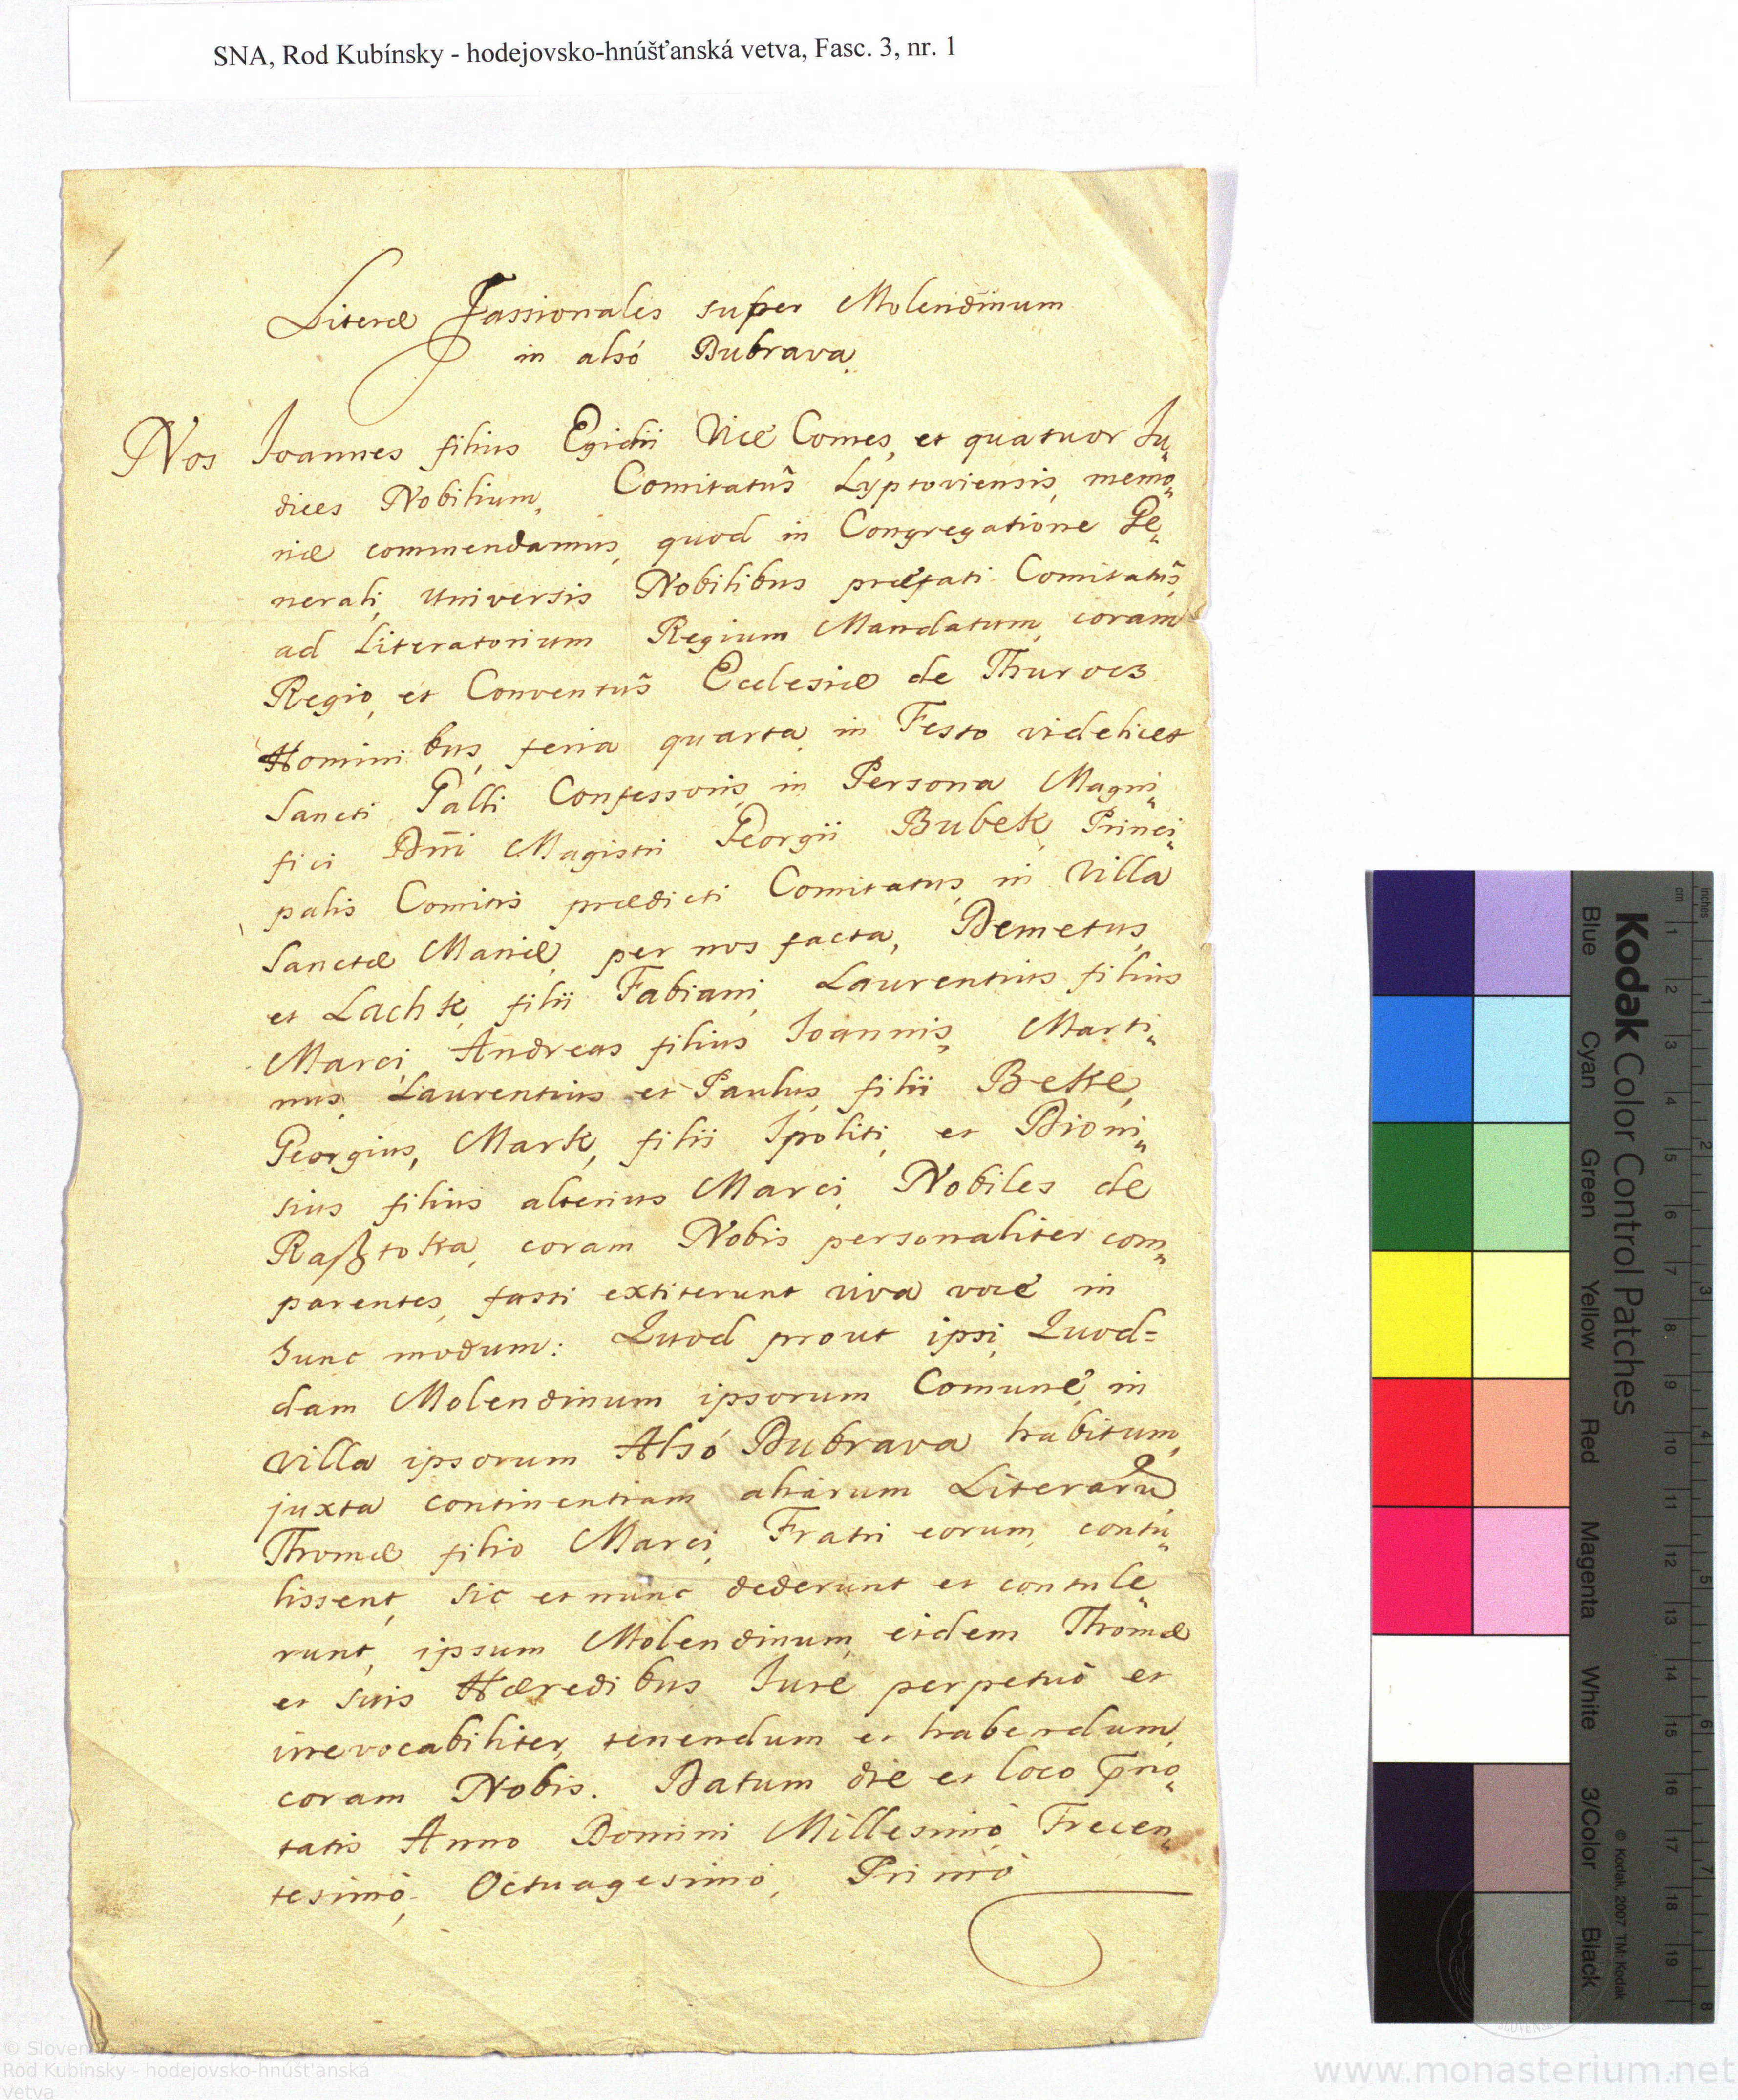 SNA, Rod Kubínsky - hodejovsko-hnúšťanská vetva, Fasc. 3, nr. 1
Literæ Fassionales super Molendinum
in alsó Dubrava.
Nos Joannes filius Egidii Vice Comes, et quatuor Ju„
dices Nobilium, Comitatûs Lyptoviensis, memo„
riæ commendamus, quod in Congregatione Ge„
nerali, Universis Nobilibus præfati Comitatûs,
ad Literatorium Regium Mandatum, coram
Regio, et Conventûs Ecclesiæ de Thurocz
Hominibus, feria quarta, in Festo videlicet
Sancti Galli Confessoris, in Persona Magni„
fici Dni Magistri Georgii Bubek, Princi„
palis Comitis prædicti Comitatus, in Villa
Sanctæ Mariæ, per nos facta, Demetus,
et Lachk, filii Fabiani, Laurentius filius
Marci, Andreas filius Joannis, Marti„
nus, Laurentius et Paulus, filii Beke,
Georgius, Mark, filii Ipoliti, et Dioni„
sius filius alterius Marci, Nobiles de
Raßtoka, coram Nobis personaliter com„
parentes, fassi extiterunt viva voce in
hunc modum: Quod prout ipsi, Quod=
dam Molendinum ipsorum Comune in
villa ipsorum Alsó Dubrava habitum,
juxta continentiam aliarum Literarũ
Thomæ filio Marci, Fratri eorum, contu„
lissent, sic et nunc dederunt et contule„
runt, ipsum Molendinum, eidem Thomæ
et suis Hæredibus Jure perpetuò et
irrevocabiliter, tenendum et habendum,
coram Nobis. Datum die et loco p̃no„
tatis Anno Domini Millesimo Trecen„
tesimò, Octuagesimò, Primò
Kodak Color Control Patches
Blue
Cyan
Green
Yellow
Red
Magenta
White
3/Color
Black
© Kodak, 2007 TM: Kodak
inches
cm
1 2 3 4 5 6 7 8 9 10 11 12 13 14 15 16 17 18 19
1 2 3 4 5 6 7 8
Rod Kubínsky - hodejovsko-hnúšťanská
vetva
www.monasterium.net